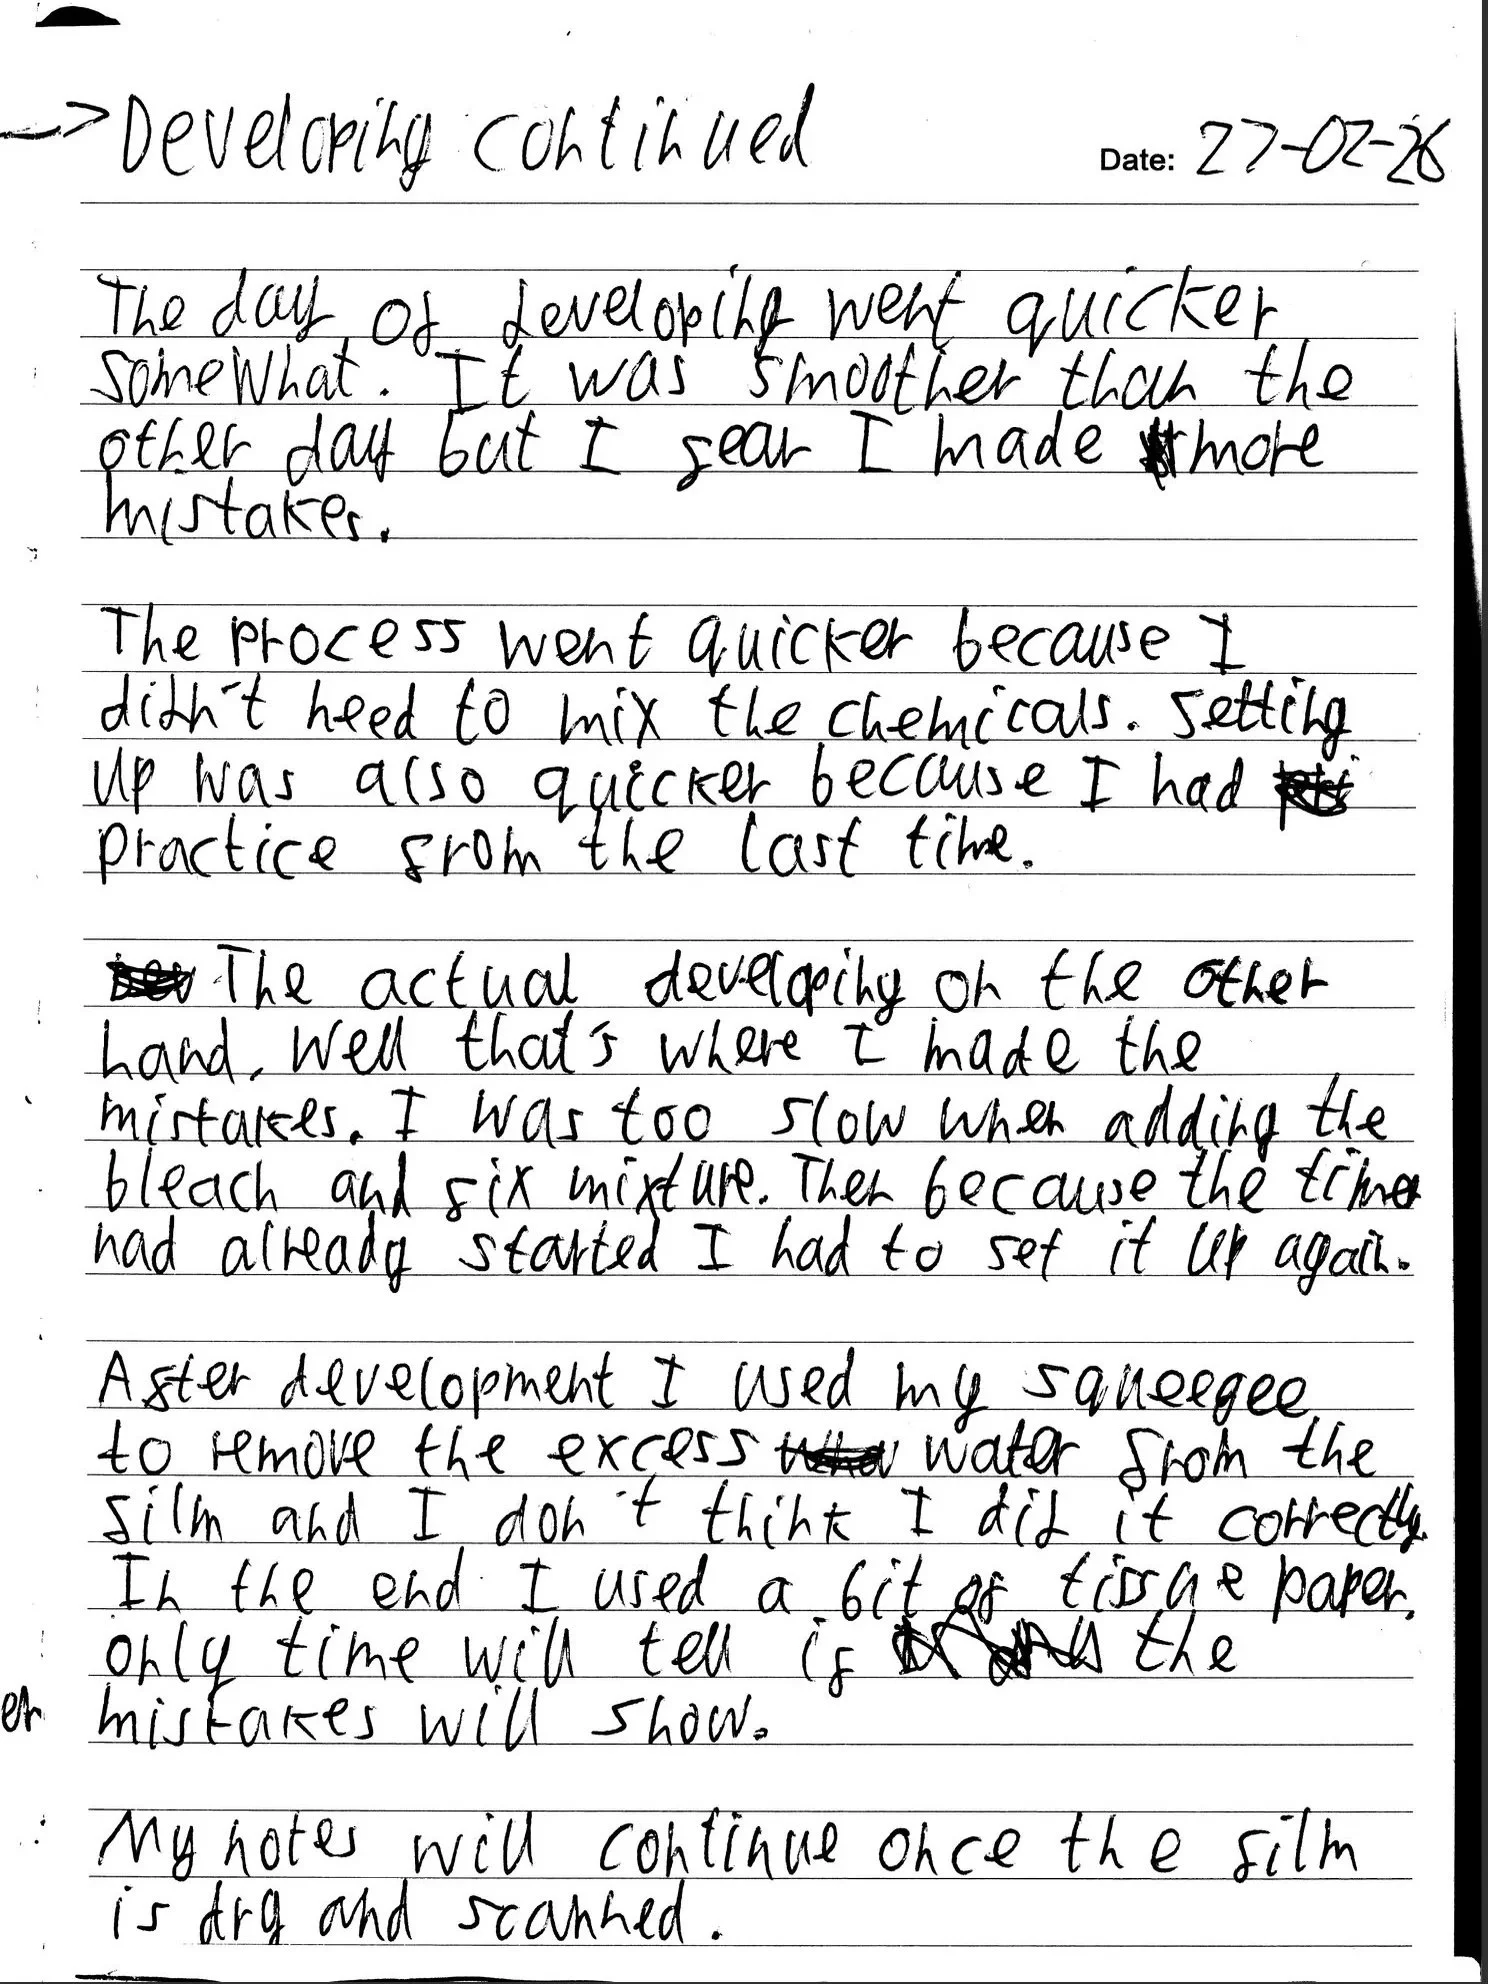 → Developing continued
Date: 27-02-26
The day of developing went quicker
somewhat. It was smoother than the
other day but I fear I made more
mistakes.
The process went quicker because I
didn't need to mix the chemicals. Setting
up was also quicker because I had
practice from the last time.
The actual developing on the other
hand, well that's where I made the
mistakes. I was too slow when adding the
bleach and fix mixture. Then because the timer
had already started I had to set it up again.
After development I used my squeegee
to remove the excess water from the
film and I don't think I did it correctly.
In the end I used a bit of tissue paper.
only time will tell if the
mistakes will show.
My notes will continue once the film
is dry and scanned.